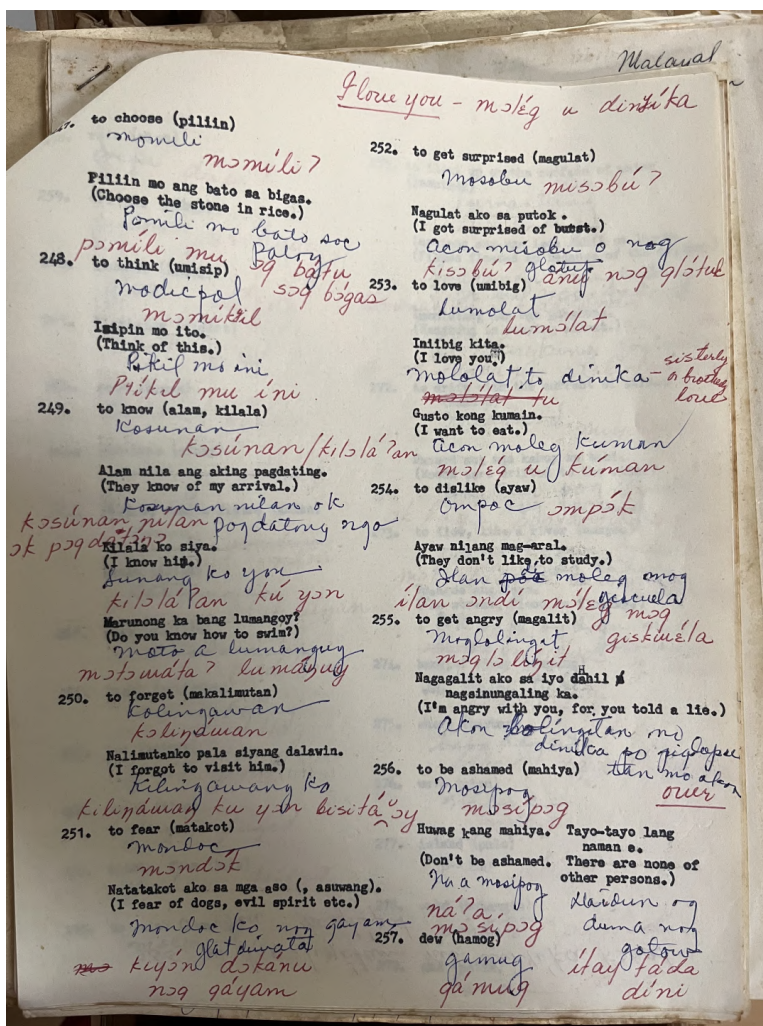 Malaual
I love you - mɔlég u dinɨ́ka
to choose (piliin)
momili
mɔmíliʔ
Piliin mo ang bato sa bigas.
(Choose the stone in rice.)
Pomili mo bato soc
Patoy
pɔmíli mu sɔg bátu
sɔg bɔ́gas
248. to think (umisip)
modicpol
Isipin mo ito.
(Think of this.)
Pikil mo ini
Ptíkil mu íni
249. to know (alam, kilala)
Kosunan
kɔsúnan/kilɔláʔan
Alam nila ang aking pagdating.
(They know of my arrival.)
Kosunan nilan ok
pogdatong ngo
kɔsúnan nílan
ɔk
Kilala ko siya.
(I know him.)
Sunang ko yon
kilɔláʔan kú yɔn
Marunong ka bang lumangoy?
(Do you know how to swim?)
Moto a lumanguy
mɔtɔwátaʔ lumáŋuy
250. to forget (makalimutan)
Kolingawan
kɔliŋáwan
Nalimutanko pala siyang dalawin.
(I forgot to visit him.)
Kilingawang ko
kiliŋáwan ku yɔn
251. to fear (matakot)
Mondoc
mɔndɔ́k
Natatakot ako sa mga aso (, asuwang).
(I fear of dogs, evil spirit etc.)
Mondoc ko nog gayam
kuyɔ́n dɔkánu
nɔg gáyam
252. to get surprised (magulat)
Mosobu misɔbúʔ
Nagulat ako sa putok.
(I got surprised of burst.)
Acon misobu o nog
glotup
kisɔbúʔ nɔg glɔ́tuk
253. to love (umibig)
Lumolat
lumɔ́lat
Iniibig kita.
(I love you.)
mololat to dinika - sisterly
or brotherly
love
Gusto kong kumain.
(I want to eat.)
Acon moleg kuman
mɔlég u kúman
254. to dislike (ayaw)
Ompoc ɔmpɔ́k
Ayaw nilang mag-aral.
(They don't like to study.)
Ilan moleg mog
ílan ɔndí mɔ́leg mɔg
giskwéla
255. to get angry (magalit)
Moglolingit
mɔglɔlíŋit
Nagagalit ako sa iyo dahil
nagsinungaling ka.
(I'm angry with you, for you told a lie.)
Akon bolingitan mo
dinika po
tan mo akon
over
256. to be ashamed (mahiya)
Mosipog
mɔsípɔg
Huwag kang mahiya. Tayo-tayo lang
naman e.
(Don't be ashamed. There are none of
other persons.)
Na a mosipog
náʔa
mɔsípɔg
Daidun og
duma nog
gotow
ítay táda
díni
257. dew (hamog)
gamug
gámug